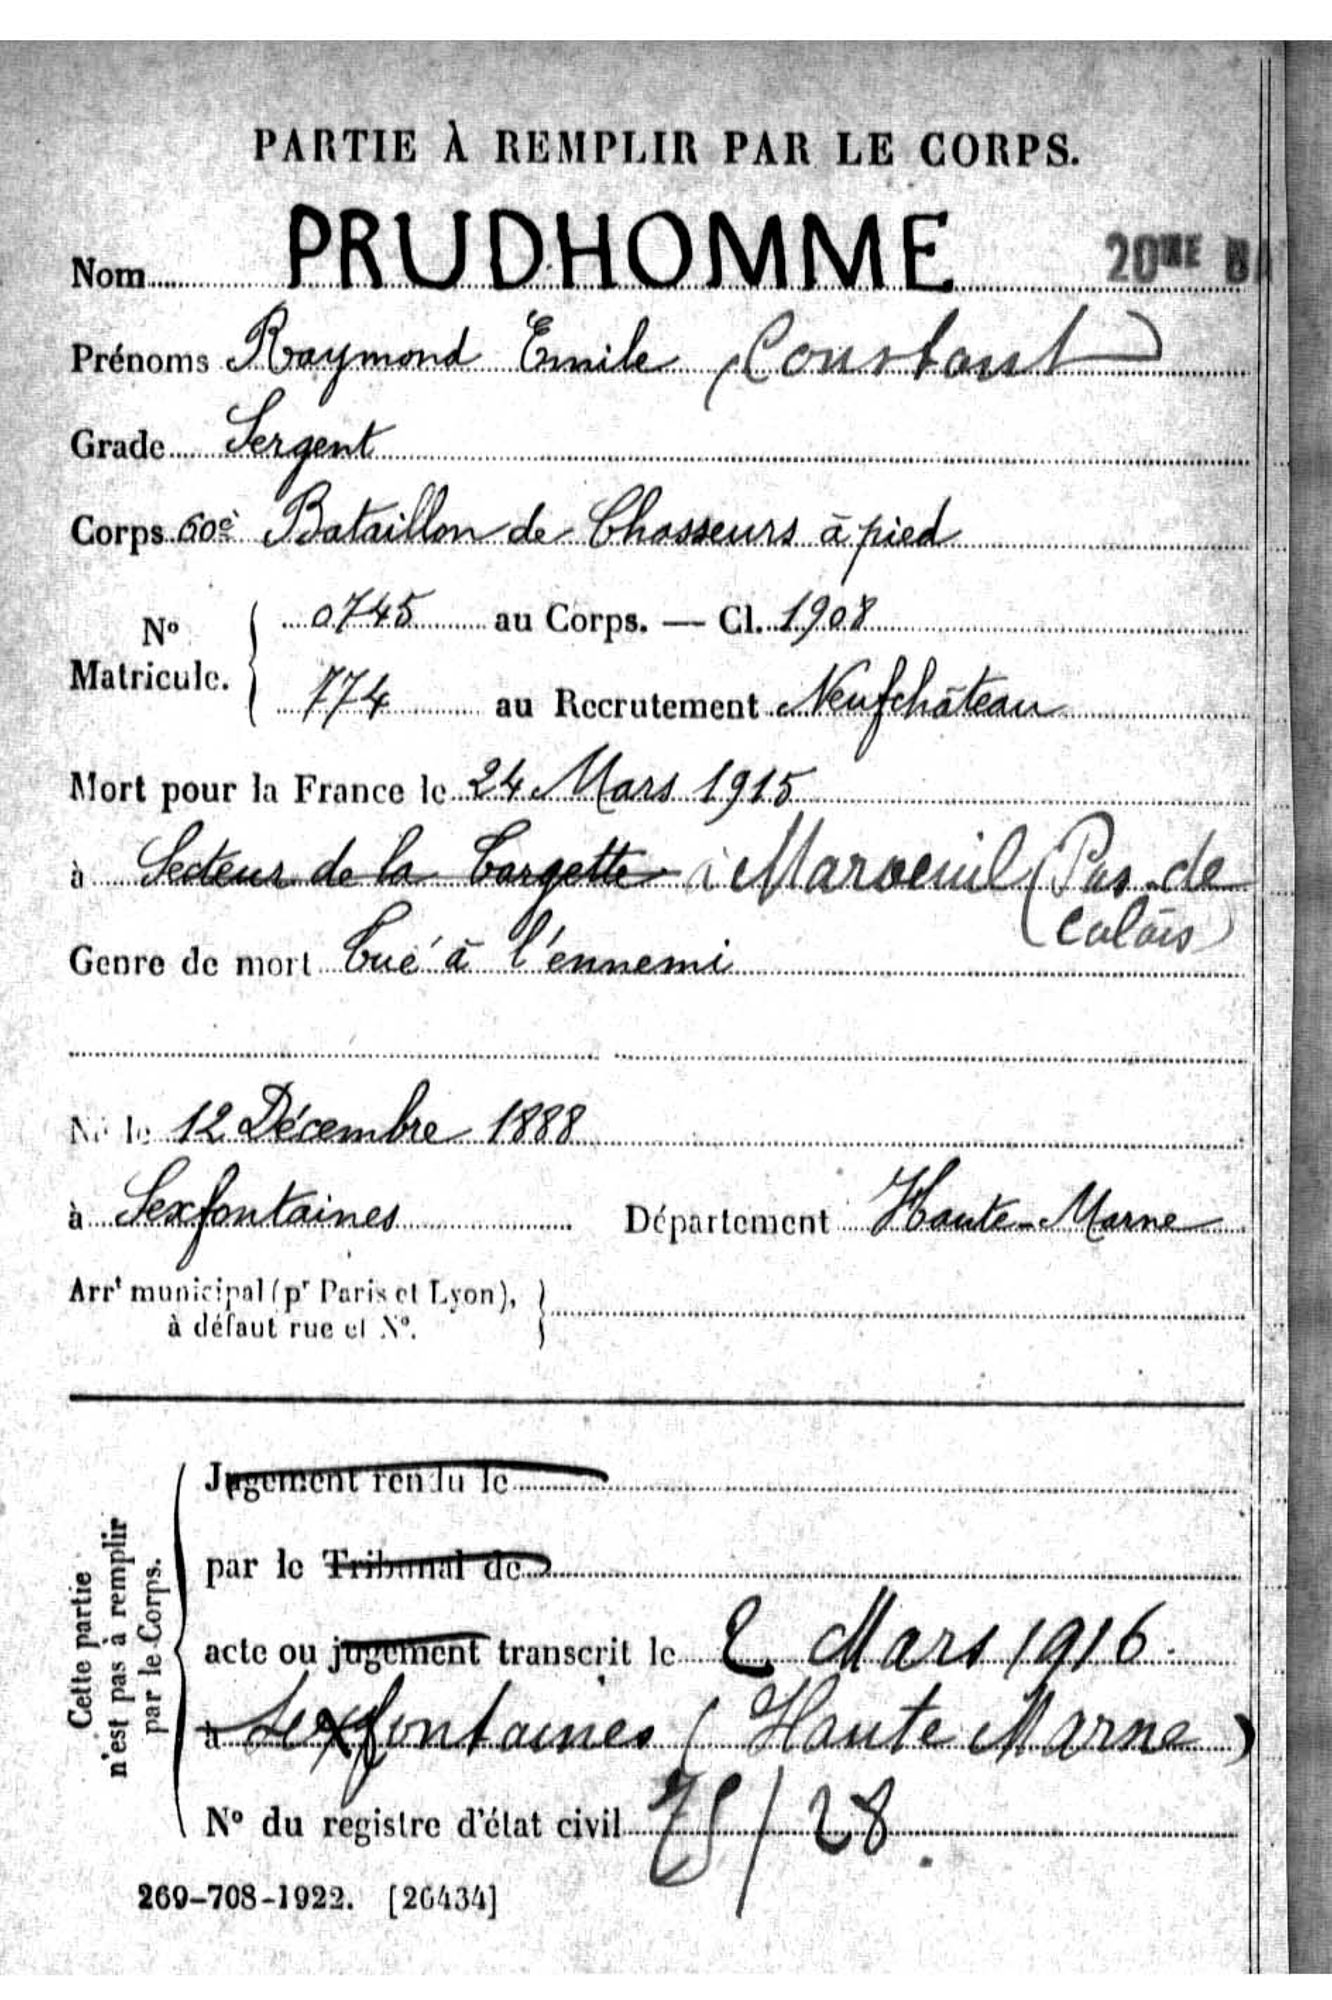 PARTIE À REMPLIR PAR LE CORPS.
Nom PRUDHOMME 20ME BA
Prénoms Raymond Emile Constant
Grade Sergent
Corps 60e Bataillon de Chasseurs à pied
No Matricule. 0745 au Corps. — Cl. 1908
774 au Recrutement Neufchâteau
Mort pour la France le 24 Mars 1915
à Secteur de la Targette à Maroeuil (Pas-de
Calais)
Genre de mort Tué à l'ennemi
Né le 12 Décembre 1888
à Sexfontaines Département Haute-Marne
Arrt municipal (pr Paris et Lyon),
à défaut rue et No.
Cette partie
n'est pas à remplir
par le Corps.
Jugement rendu le
par le Tribunal de
acte ou jugement transcrit le 2 Mars 1916.
à Sexfontaines (Haute Marne)
No du registre d'état civil 75/28.
269-708-1922. [26434]